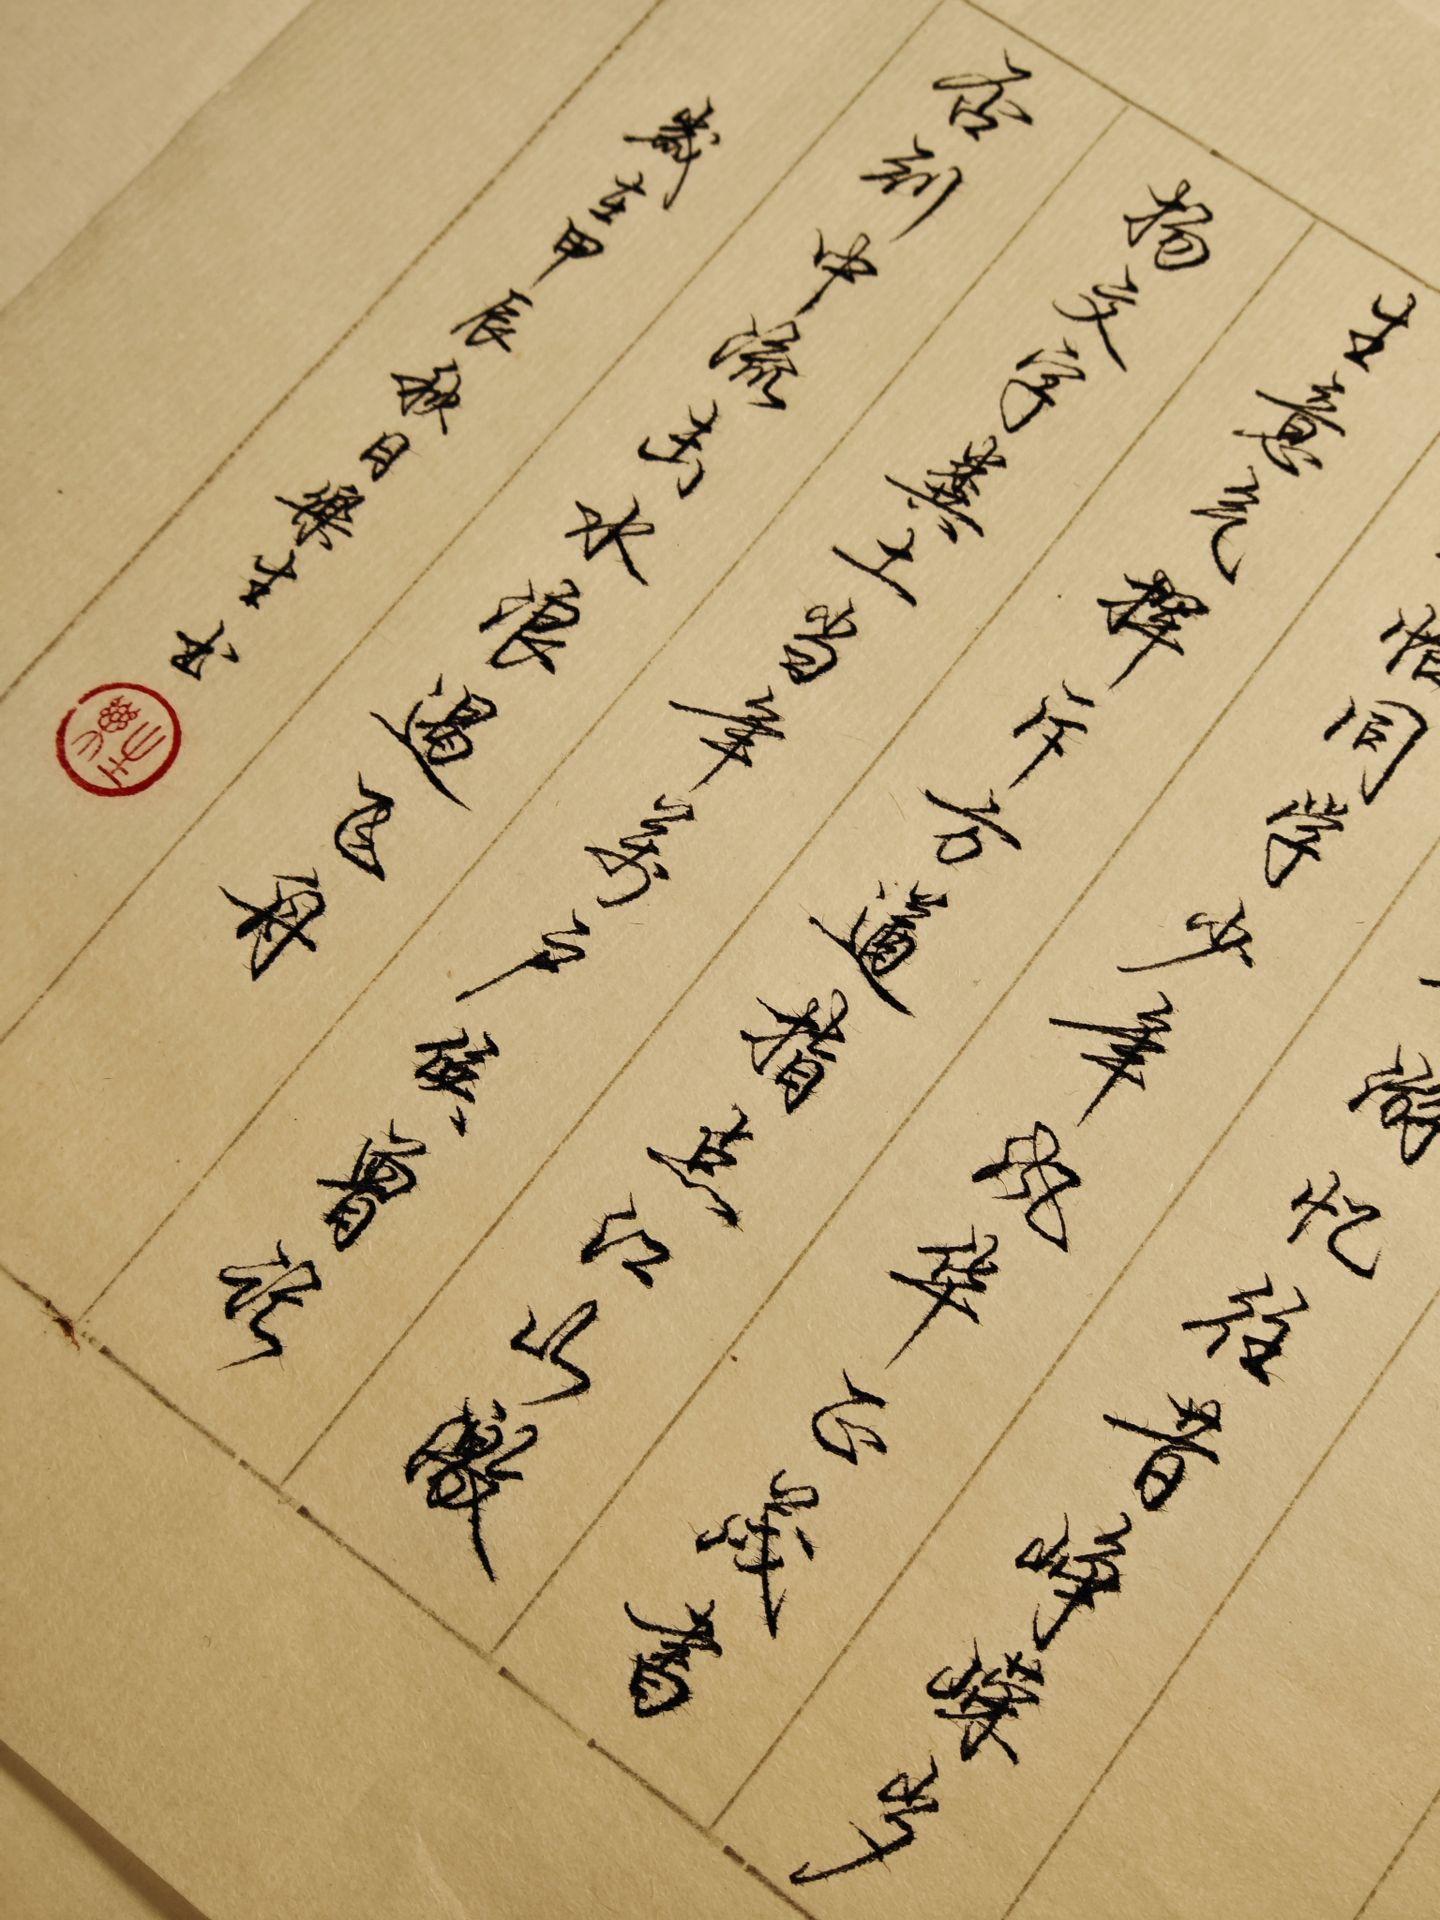 游忆往昔峥嵘岁
恰同学少年风华正茂書
生意气挥斥方遒指点江山激
扬文字粪土当年万户侯曾记
否到中流击水浪遏飞舟
歲在甲辰秋日樂生书